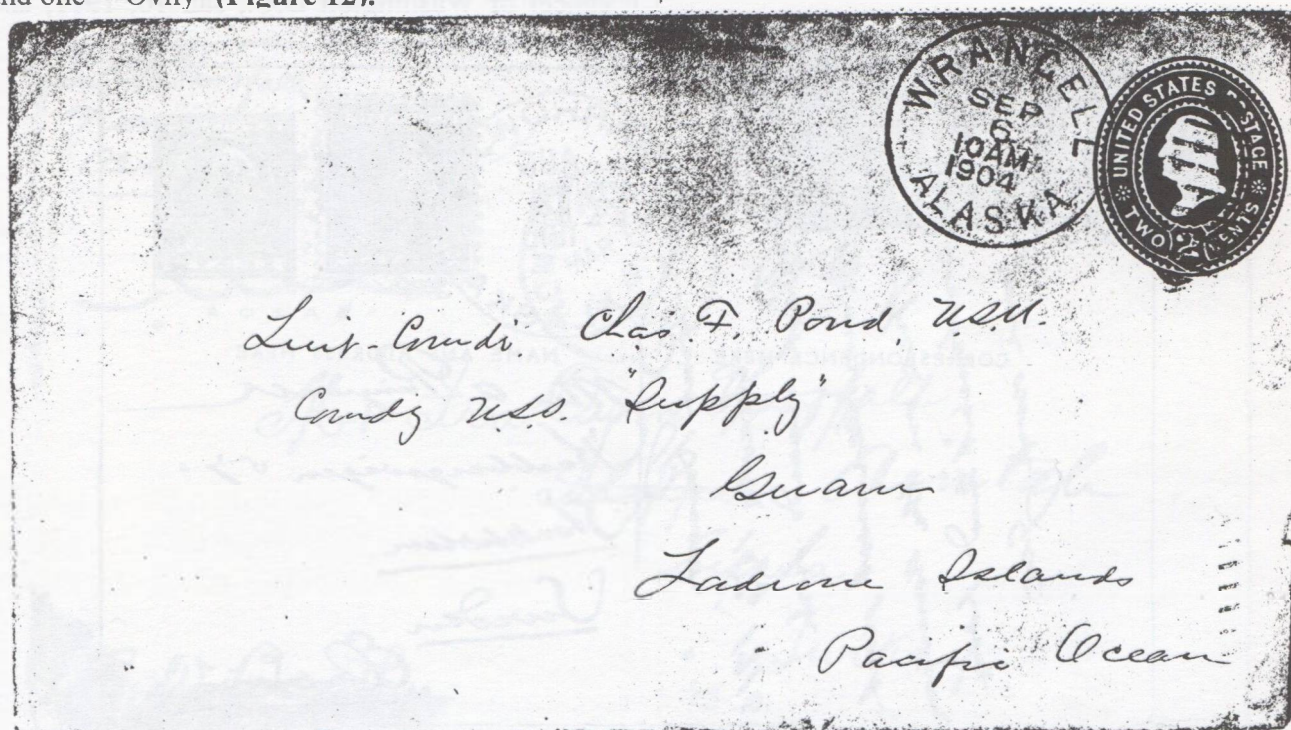 nd one "Ovily" (Figure 12).
WRANGELL
SEP
6
10AM
1904
ALASKA
UNITED STATES POSTAGE
TWO 2 CENTS
Lieut-Comdr. Chas. F. Pond, USN.
Comdg U.S.S. "Supply"
Guam
Ladrone Islands
Pacific Ocean